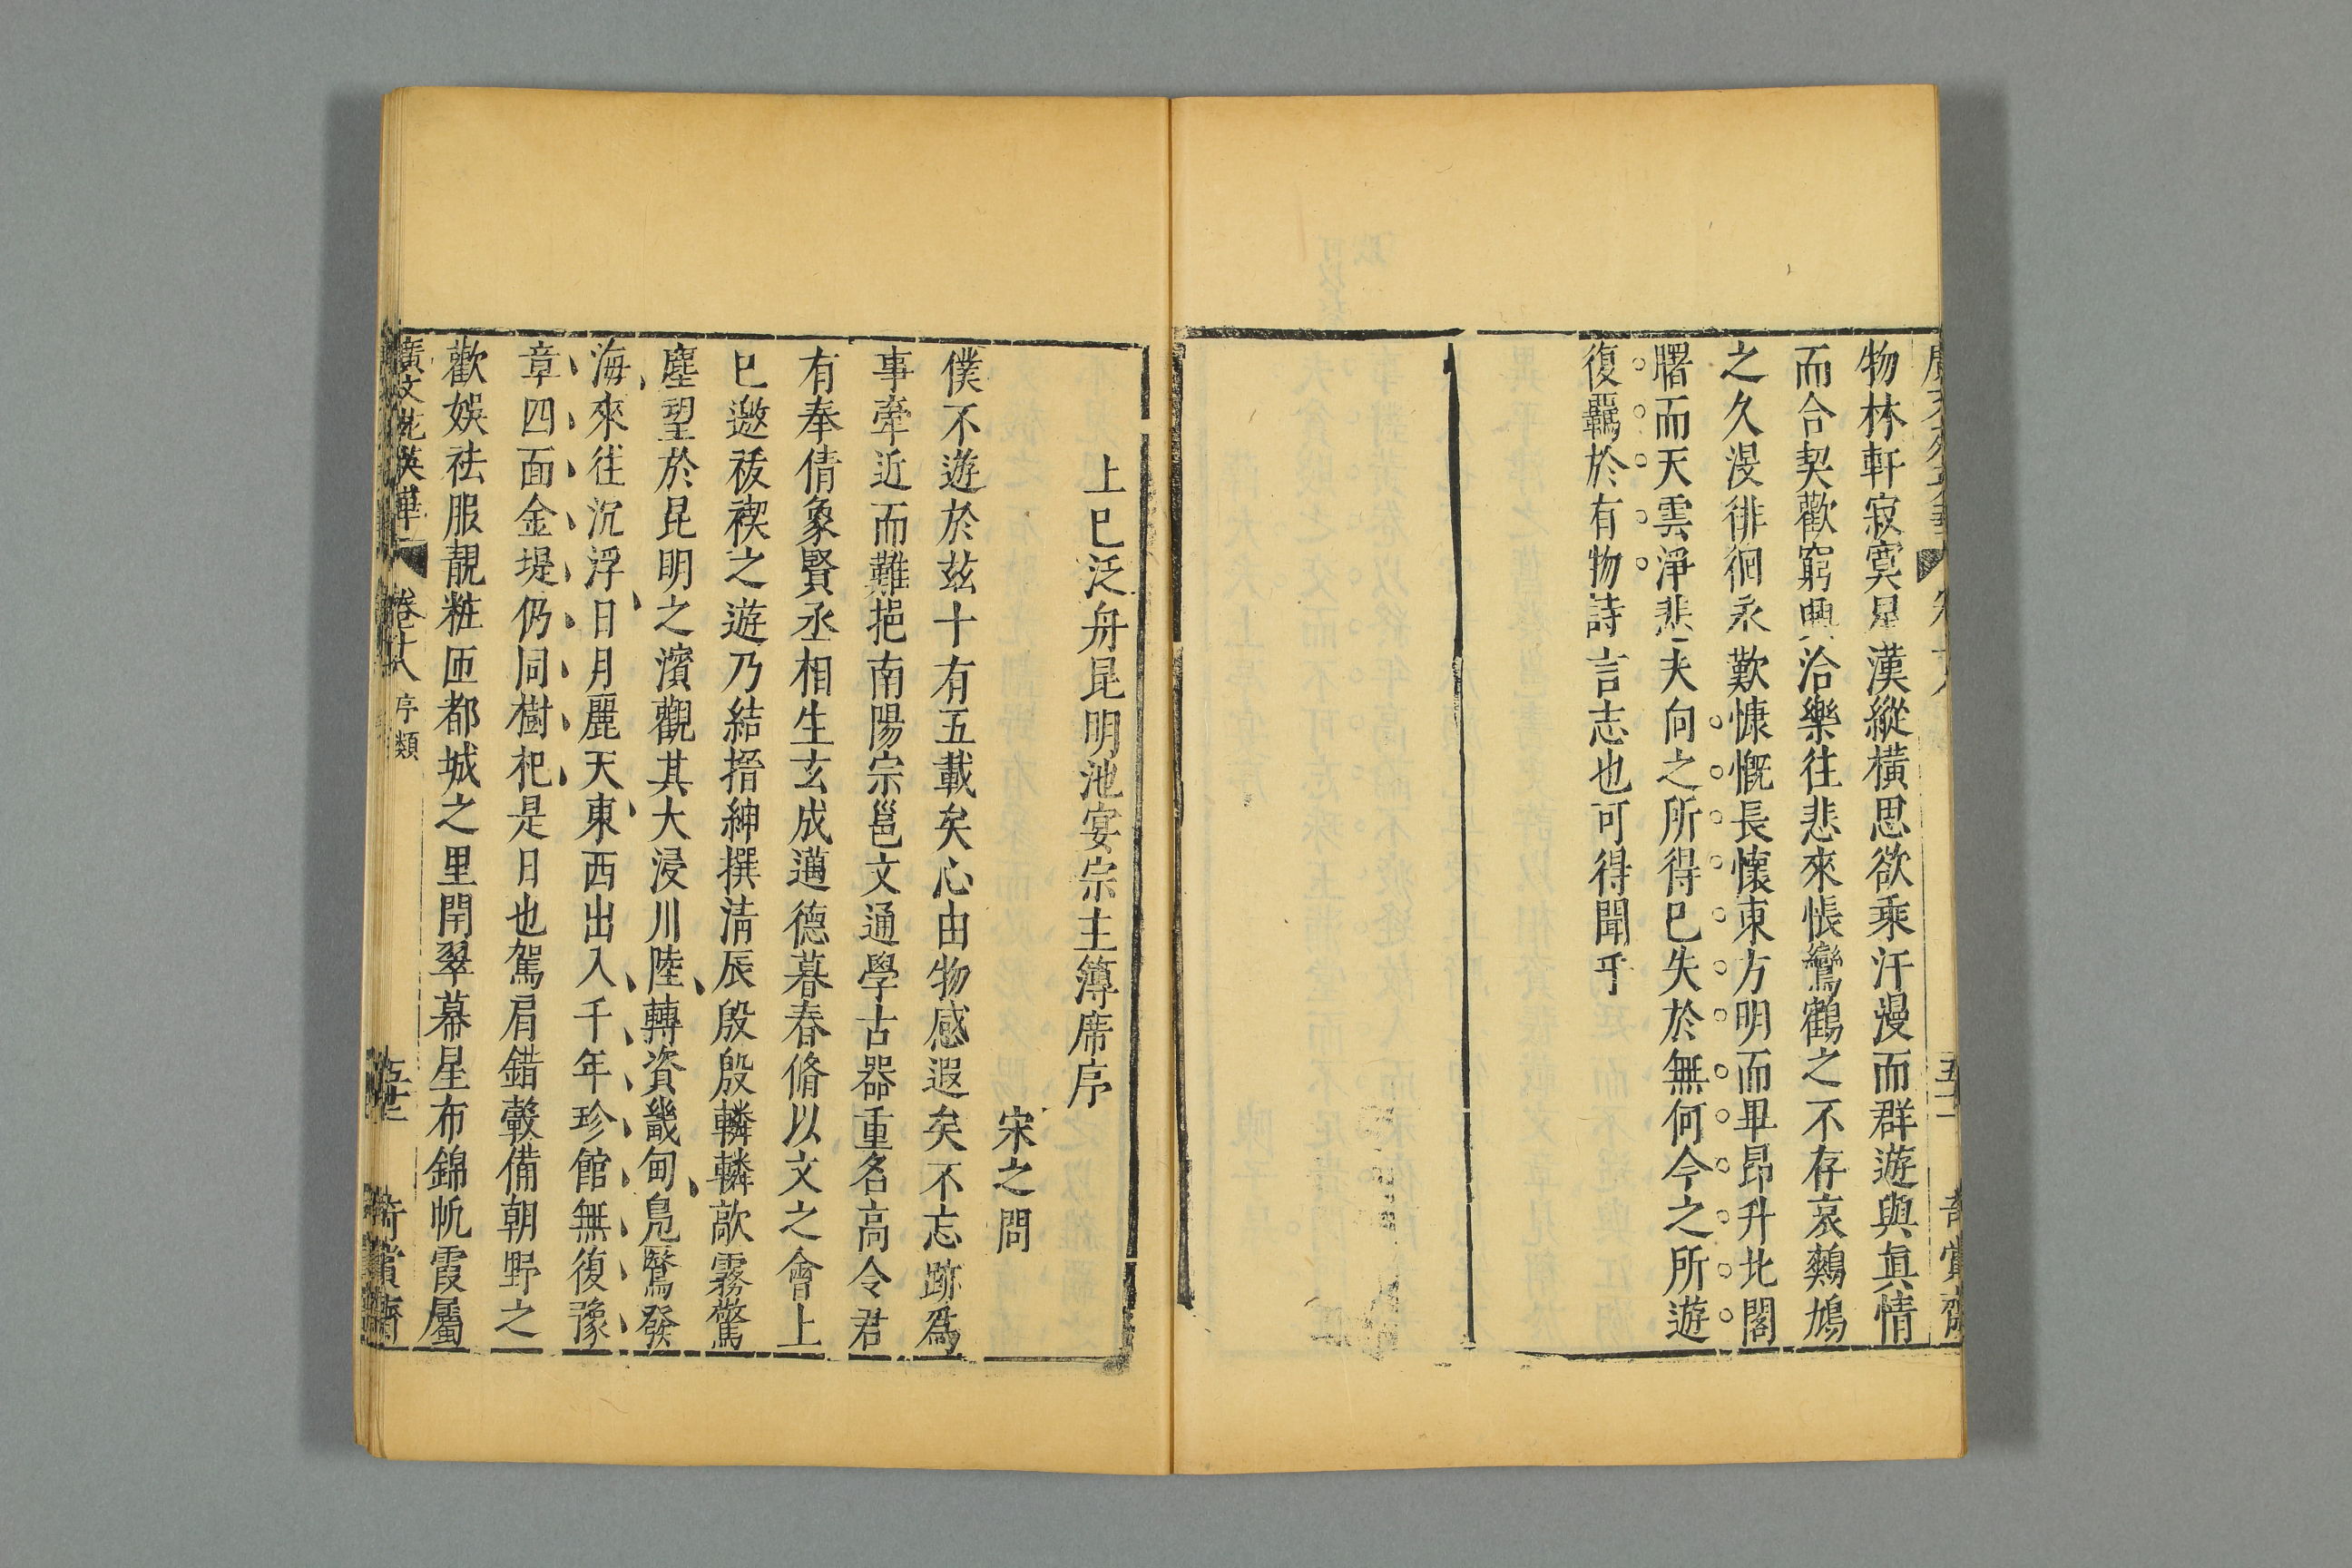 物林軒寂寞星漢縱橫思欲乘汗漫而群遊與眞情
而合契歡窮興洽樂往悲來悵鸞鶴之不存哀鷯鳩
之久漫徘徊永歎慷慨長懷東方明而畢昂升北閣
曙而天雲淨悲夫向之所得已失於無何今之所遊
復羈於有物詩言志也可得聞乎
上巳泛舟昆明池宴宗主簿席序
宋之問
僕不遊於茲十有五載矣心由物感遐矣不忘跡爲
事牽近而難挹南陽宗邕文通學古器重名高令君
有奉倩象賢丞相生玄成邁德暮春脩以文之會上
巳邀祓禊之遊乃結搢紳撰淸辰殷殷轔轔歊霧驚
塵望於昆明之濱觀其大浸川陸轉資畿甸鳧鷖發
海來往沉浮日月麗天東西出入千年珍館無復豫
章四面金堤仍同樹杞是日也駕肩錯轂備朝野之
歡娛袪服靚粧匝都城之里閈翠幕星布錦帆霞屬
廣文苑英華 卷十八 序類 五十三 奇賞齋